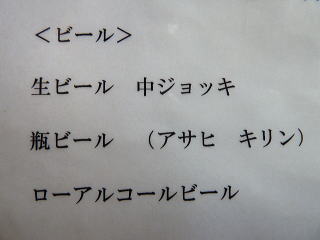 ＜ビール＞
生ビール　中ジョッキ
瓶ビール　（アサヒ　キリン）
ローアルコールビール